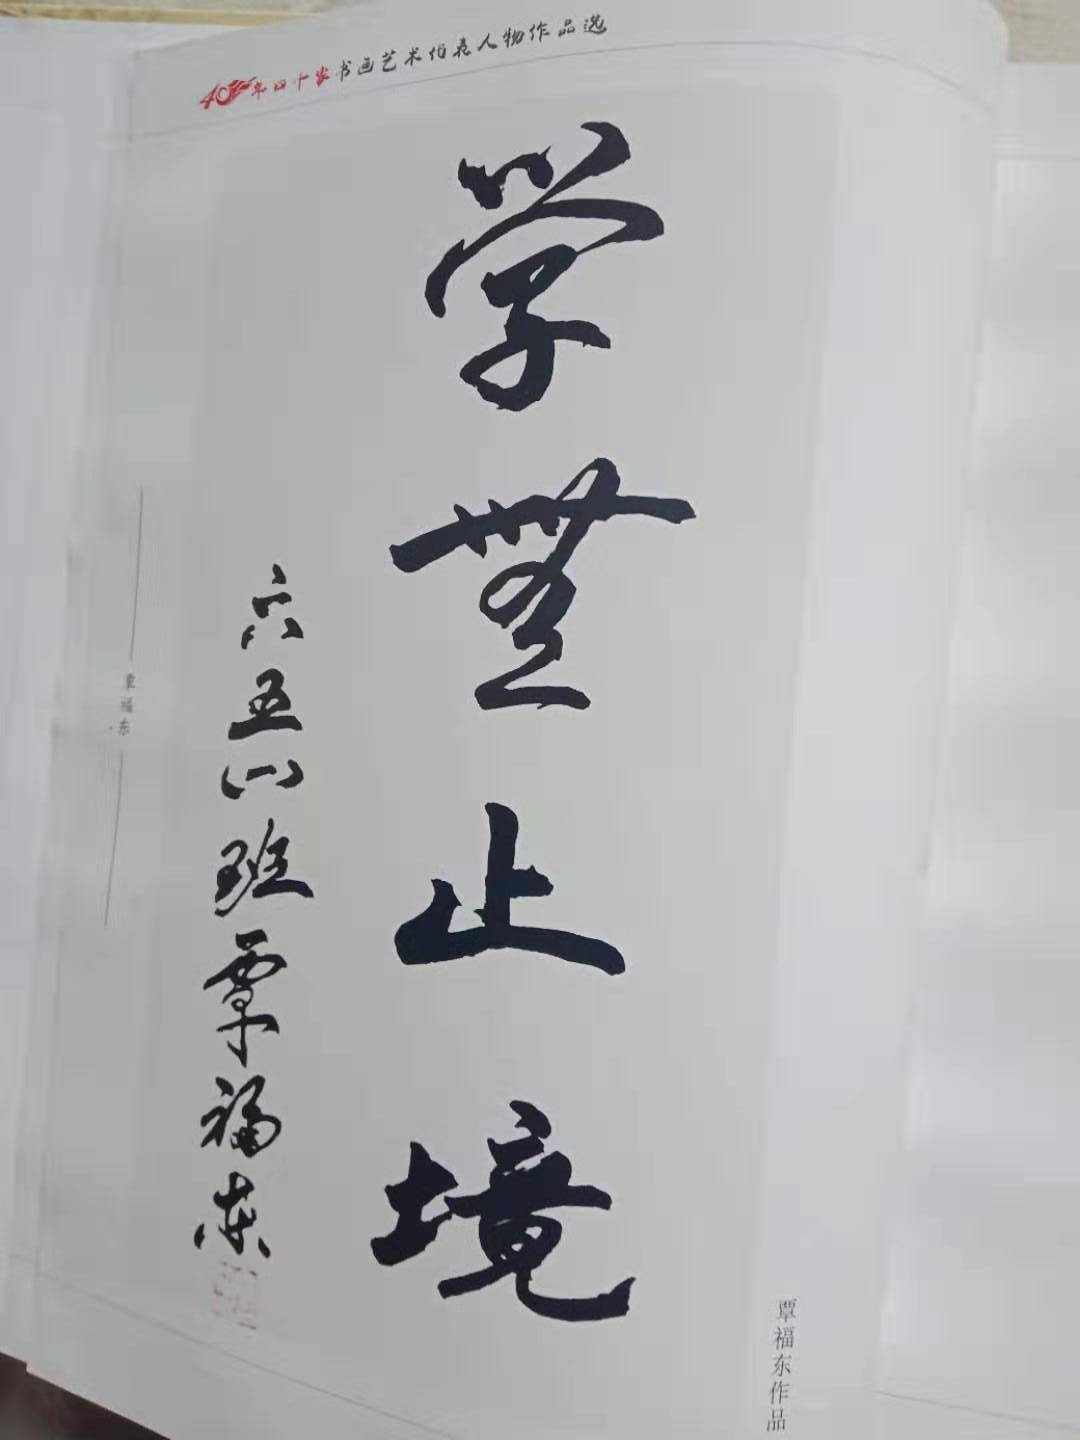 40年四十家书画艺术代表人物作品选
学無止境
六五八班覃福东
覃福东
覃福东作品